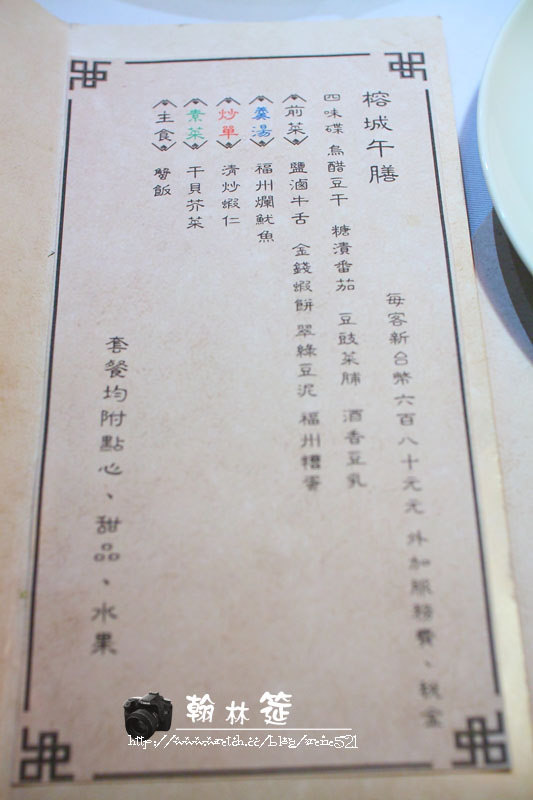 榕城午膳
每客新台幣六百八十元元 外加服務費、稅金
四味碟 烏醋豆干 糖漬番茄 豆豉菜脯 酒香豆乳
前菜 鹽滷牛舌 金錢蝦餅 翠綠豆泥 福州糟蛋
羹湯 福州爛魷魚
炒單 清炒蝦仁
素菜 干貝芥菜
主食 蟹飯
套餐均附點心、甜品、水果
翰林筵
http://www.wretch.cc/blog/irene521